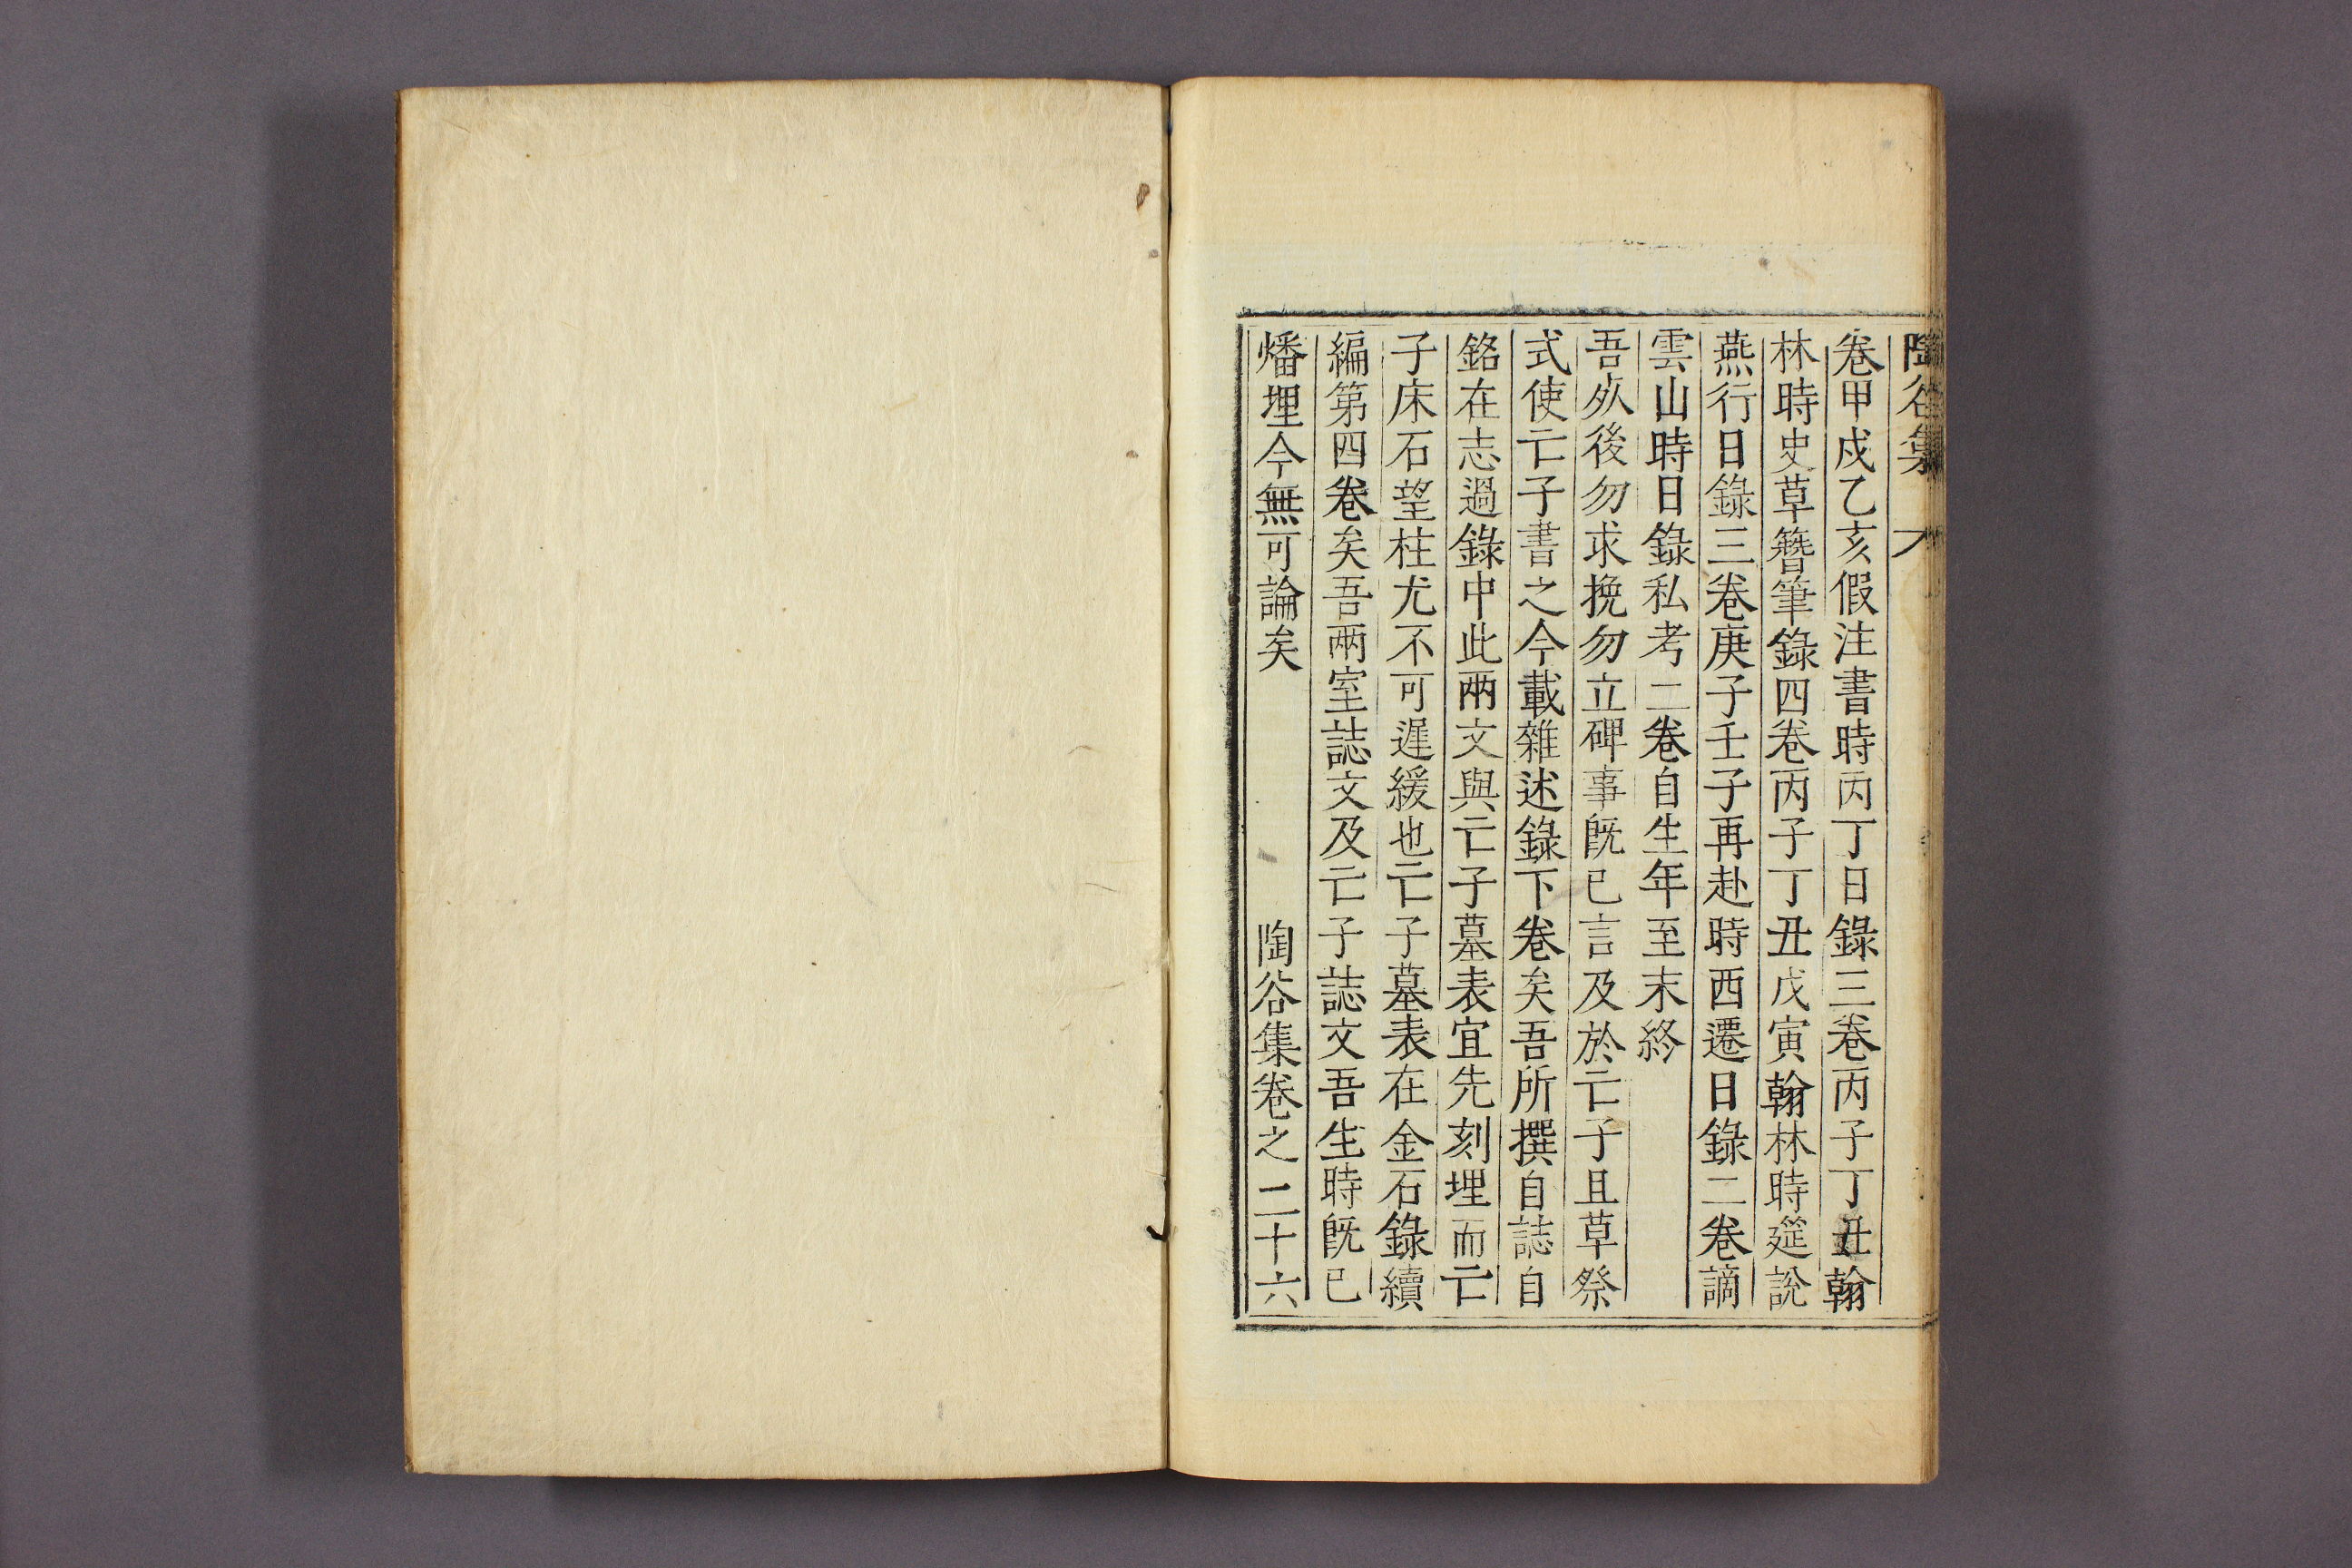 陶谷集
卷甲戍乙亥假注書時丙丁日錄三卷丙子丁丑翰
林時史草簪筆錄四卷丙子丁丑戊寅翰林時筵說
燕行日錄三卷庚子壬子再赴時西遷日錄二卷謫
雲山時日錄私考二卷自生年至末終
吾死後勿求挽勿立碑事旣已言及於亡子且草祭
式使亡子書之今載雜述錄下卷矣吾所撰自誌自
銘在志過錄中此兩文與亡子墓表宜先刻埋而亡
子床石望柱尤不可遲緩也亡子墓表在金石錄續
編第四卷矣吾兩室誌文及亡子誌文吾生時旣已
燔埋今無可論矣
陶谷集卷之二十六